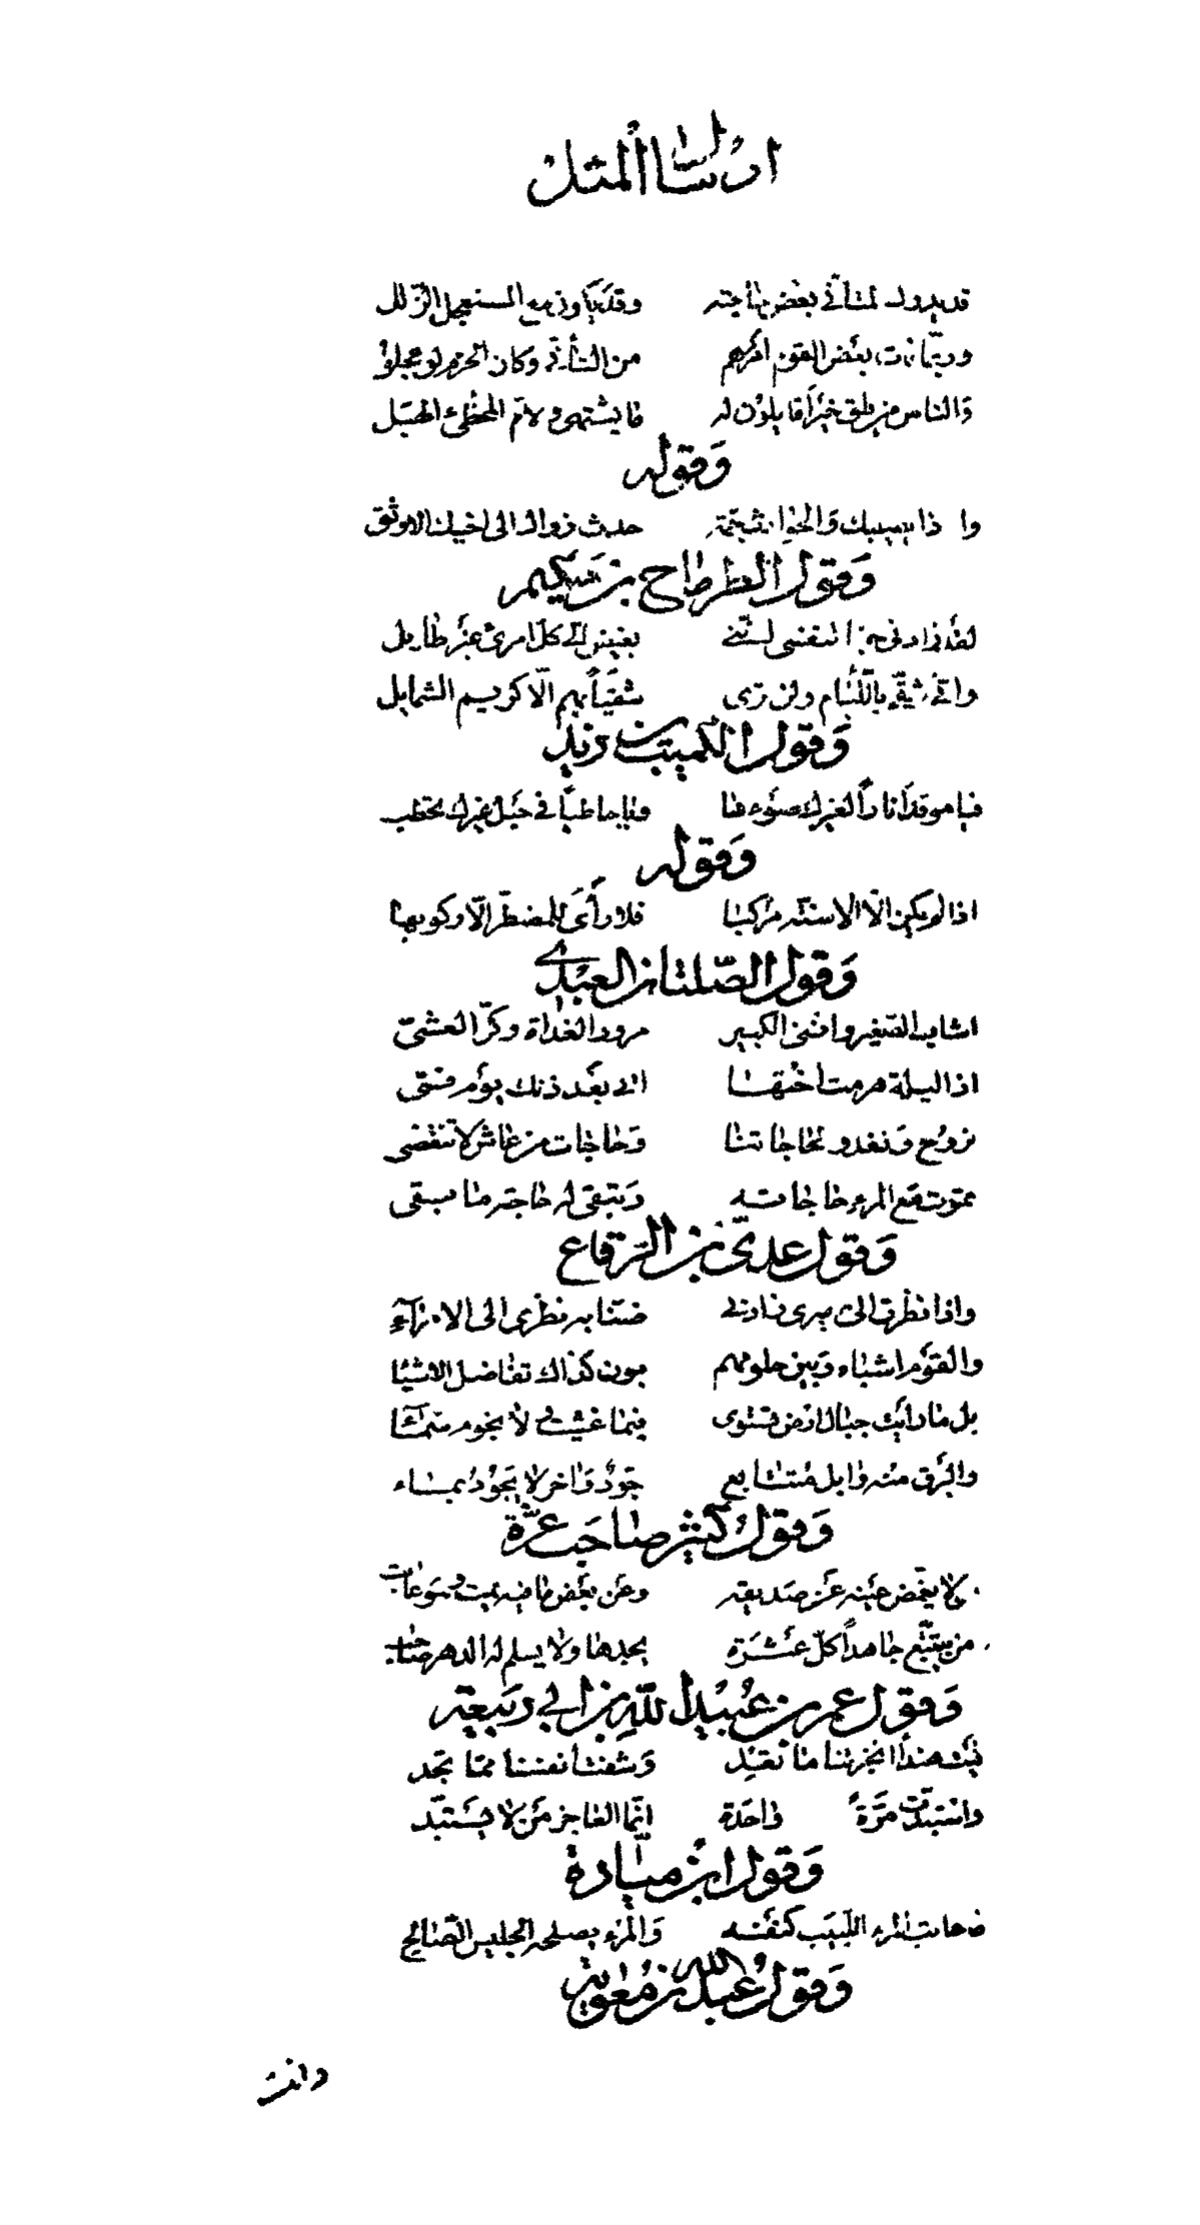 ارسال المثل
قد يدرك المتأنّى بعض حاجته وقد يكون مع المستعجل الزلل
وربّما فات بعض القوم امرهم من التأنّى وكان الحزم لو عجلوا
والناس من يلق خيرا قايلون له ما يشتهى ولامّ المخطئ الهبل
وَقوله
حدث زواك الى اخيك الاوثق
وَقول الطرماح بن حكيم
لقد زادنى حبا لنفسى انّنى بغيض الى كلّ امرئ غير طايل
وانّى شقىّ باللّئام ولن ترى شقيّا بهم الّا كريم الشمايل
وَقول الكميت بن زيد
فيا موقدا نارا لغيرك ضوءها ويا حاطبا فى حبل غيرك تحطب
وَقوله
اذا لم يكن الّا الاسنّة مركبا فلا رأى للمضطرّ الّا ركوبها
وَقول الصّلتان العبدى
اشاب الصّغير وافنى الكبير مرور الغداة وكرّ العشىّ
اذا ليلة هرمت اختها اتى بعد ذلك يوم فتى
نروح وَنغدو لحاجاتنا وَحاجات من عاش لا تنقضى
تموت مع المرء حاجاته وَتبقى له حاجة ما بقى
وَقول عدىّ بن الرّقاع
واذا نظرت الى اميرى زادنى ضنّا به نظرى الى الامرآءِ
والقوم اشباه وَبين حلومهم بون كذاك تفاضل الاشيا
بل ما رايت جبال ارض تستوى فيما غشيت ولا نجوم سمآء
والبرق منه وابل متتابع جَودٌ وَاخر لا يَجُودُ بماء
وَقول كُثيّر صاحب عزّة
ومن لا يغمض عينه عن صديقه وعن بعض ما فيه يمت وهو عاتب
ومن يتتبّع جاهداً كلّ عثرة يجدها ولا يسلم له الدهر صاحب
وَقول عمر بن عُبيد اللّه بن ابى ربيعة
ليت هندا انجزتنا ما تعد وَشفت انفسنا ممّا تجد
واستبدّت مرّةً واحدة انّما العاجز من لا يستبدّ
وَقول ابن ميّادة
ما عاتب المرء اللّبيب كنفسه وَالمرء يصلحه الجليس الصّالح
وَقول عبد اللّه بن معوية